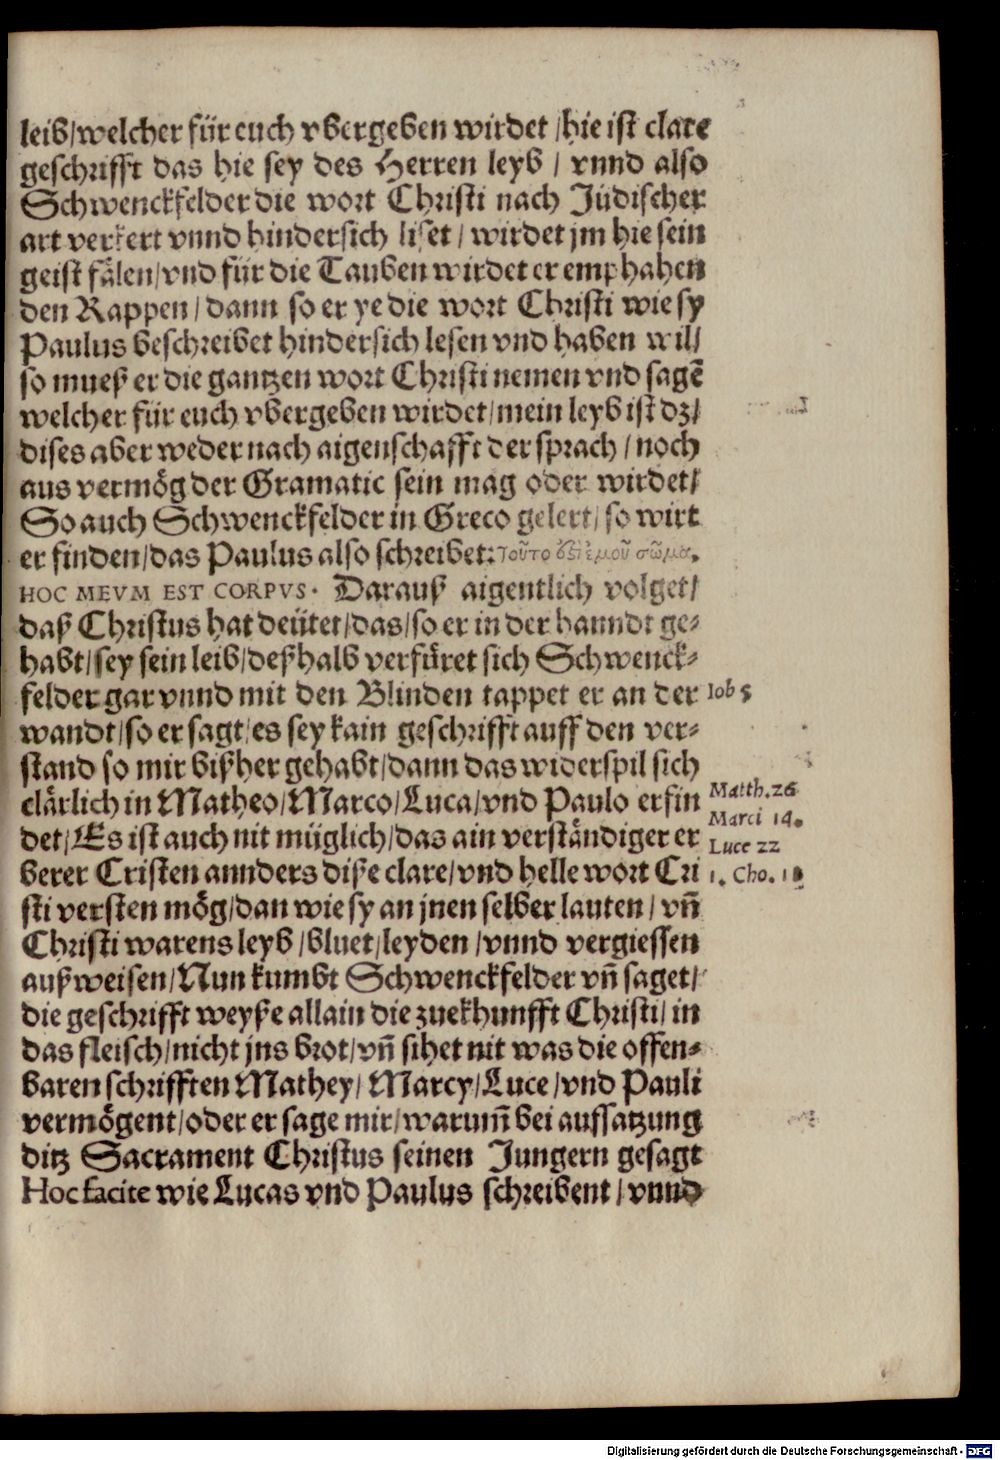 leib/welcher für euch vbergeben wirdet/hie ist clare
geschrifft das hie sey des Herren leyb/ vnnd also
Schwenckfelder die wort Christi nach Jüdischer
art verkert vnnd hindersich liset/ wirdet jm hie sein
geist fälen/vnd für die Tauben wirdet er emphahen
den Rappen/dann so er ye die wort Christi wie sy
Paulus beschreibet hindersich lesen vnd haben wil/
so mueß er die gantzen wort Christi nemen vnd sagē
welcher für euch vbergeben wirdet/mein leyb ist dz/
dises aber weder nach aigenschafft der sprach/noch
aus vermög der Gramatic sein mag oder wirdet/
So auch Schwenckfelder in Greco gelert/so wirt
er finden/das Paulus also schreibet: τοῦτο μοῦ σῶμα.
HOC MEVM EST CORPVS. Darauß aigentlich volget/
daß Christus hat deütet/das/so er in der hanndt ge-
habt/sey sein leib/deßhalb verfüret sich Schwenck-
felder gar vnnd mit den Blinden tappet er an der
Iob 5
wandt/so er sagt/es sey kain geschrifft auff den ver-
stand so mir bißher gehabt/dann das widerspil sich
clärlich in Matheo/Marco/Luca/vnd Paulo erfin
Matth.26
Marci 14.
det/Es ist auch nit müglich/das ain verständiger er
Luce 22
berer Cristen annders diße clare/vnd helle wort Cri
1. Cho.
sti versten mög/dan wie sy an jnen selber lauten/ vñ
Christi warens leyb/bluet/leyden/vnnd vergiessen
außweisen/Nun kumbt Schwenckfelder vñ saget/
die geschrifft weyße allain die zuekhunfft Christi/in
das fleisch/nicht jns brot/vñ sihet nit was die offen-
baren schrifften Mathey/Marcy/Luce/vnd Pauli
vermögent/oder er sage mir/warum̄ bei auffsatzung
ditz Sacrament Christus seinen Jungern gesagt
Hoc facite wie Lucas vnd Paulus schreibent/vnnd
Digitalisierung gefördert durch die Deutsche Forschungsgemeinschaft - DFG